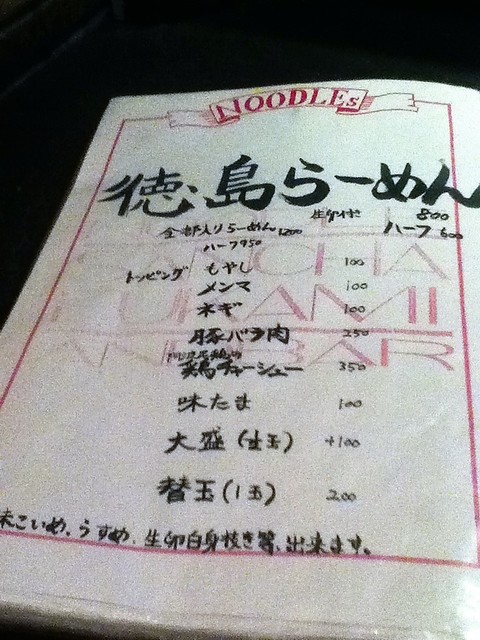 NOODLEs
徳島らーめん
生卵付き 800
ハーフ 600
全部入りらーめん 1200
ハーフ 950
トッピング もやし 100
メンマ 100
ネギ 100
豚バラ肉 250
鶏チャーシュー 350
味たま 100
大盛(1.5玉) +100
替玉(1玉) 200
味こいめ、うすめ、生卵白身抜き等、出来ます。